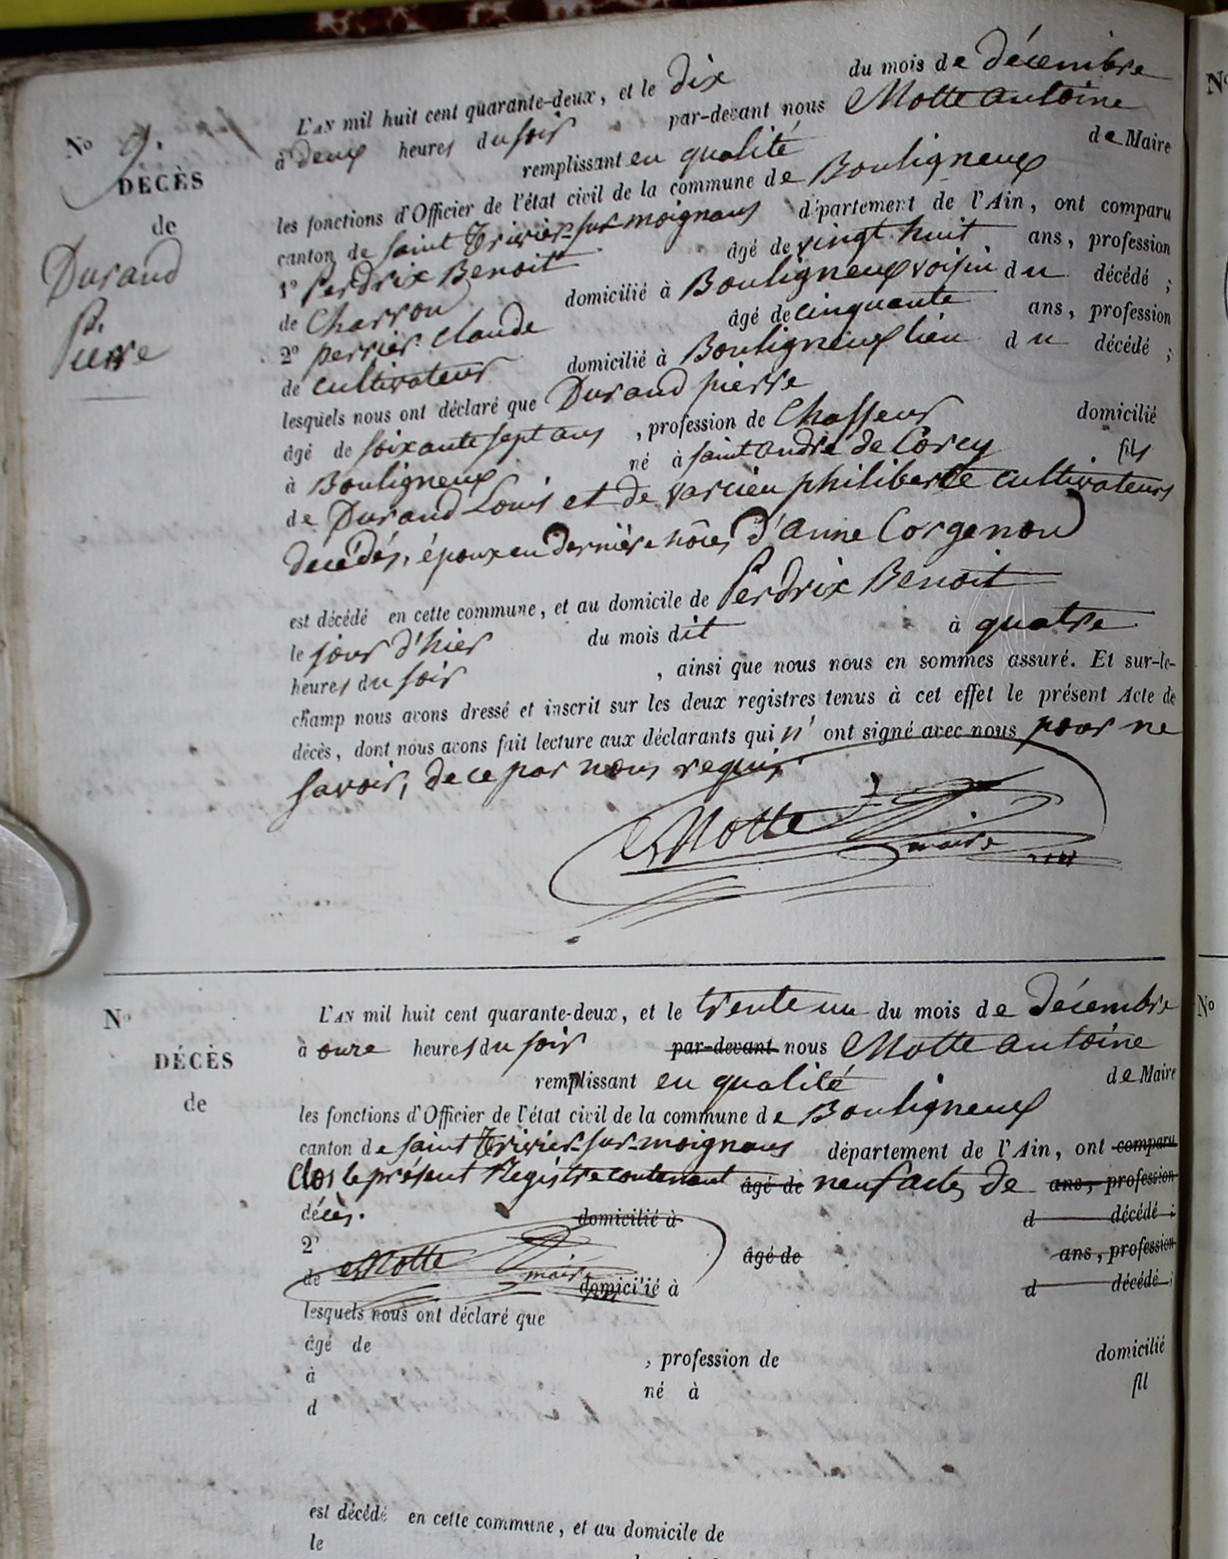 L'AN mil huit cent quarante-deux, et le dix du mois de décembre
à deux heures du soir par-devant nous Motte antoine
remplissant en qualité de Maire
les fonctions d'Officier de l'état civil de la commune de Bouligneux
canton de saint Trivier-sur-moignans département de l'Ain, ont comparu
1º Perdrix Benoit âgé de vingt huit ans, profession
de Charron domicilié à Bouligneux voisin du décédé ;
2º perrier Claude âgé de cinquante ans, profession
de cultivateur domicilié à Bouligneux lieu du décédé ;
lesquels nous ont déclaré que Durand pierre
âgé de soixante sept ans , profession de Chasseur domicilié
à Bouligneux né à saint andré de Corcy fils
de Durand Louis et de varcieu philiberte cultivateurs
decédés, époux en dernière nôces d'anne Corgenon
est décédé en cette commune, et au domicile de Perdrix Benoit
le jour d'hier du mois dit à quatre
heures du soir , ainsi que nous nous en sommes assuré. Et sur-le-
champ nous avons dressé et inscrit sur les deux registres tenus à cet effet le présent Acte de
décès, dont nous avons fait lecture aux déclarants qui n'ont signé avec nous pour ne
savoir, de ce par nous requis.
Motte
maire
Nº 9.
DÉCÈS
de
Durand
P.
Pierre
Nº
DÉCÈS
de
L'AN mil huit cent quarante-deux, et le trente un du mois de décembre
à onze heures du soir par-devant nous Motte antoine
remplissant en qualité de Maire
les fonctions d'Officier de l'état civil de la commune de Bouligneux
canton de saint Trivier-sur-moignans département de l'Ain, ont comparu
Clos le présent Registre contenant âgé de neuf actes de ans, profession
décès. domicilié à d décédé ;
2º âgé de ans, profession
de Motte maire domicilié à d décédé ;
lesquels nous ont déclaré que
âgé de , profession de domicilié
à né à fil
d
est décédé en cette commune, et au domicile de
le
Nº
Nº